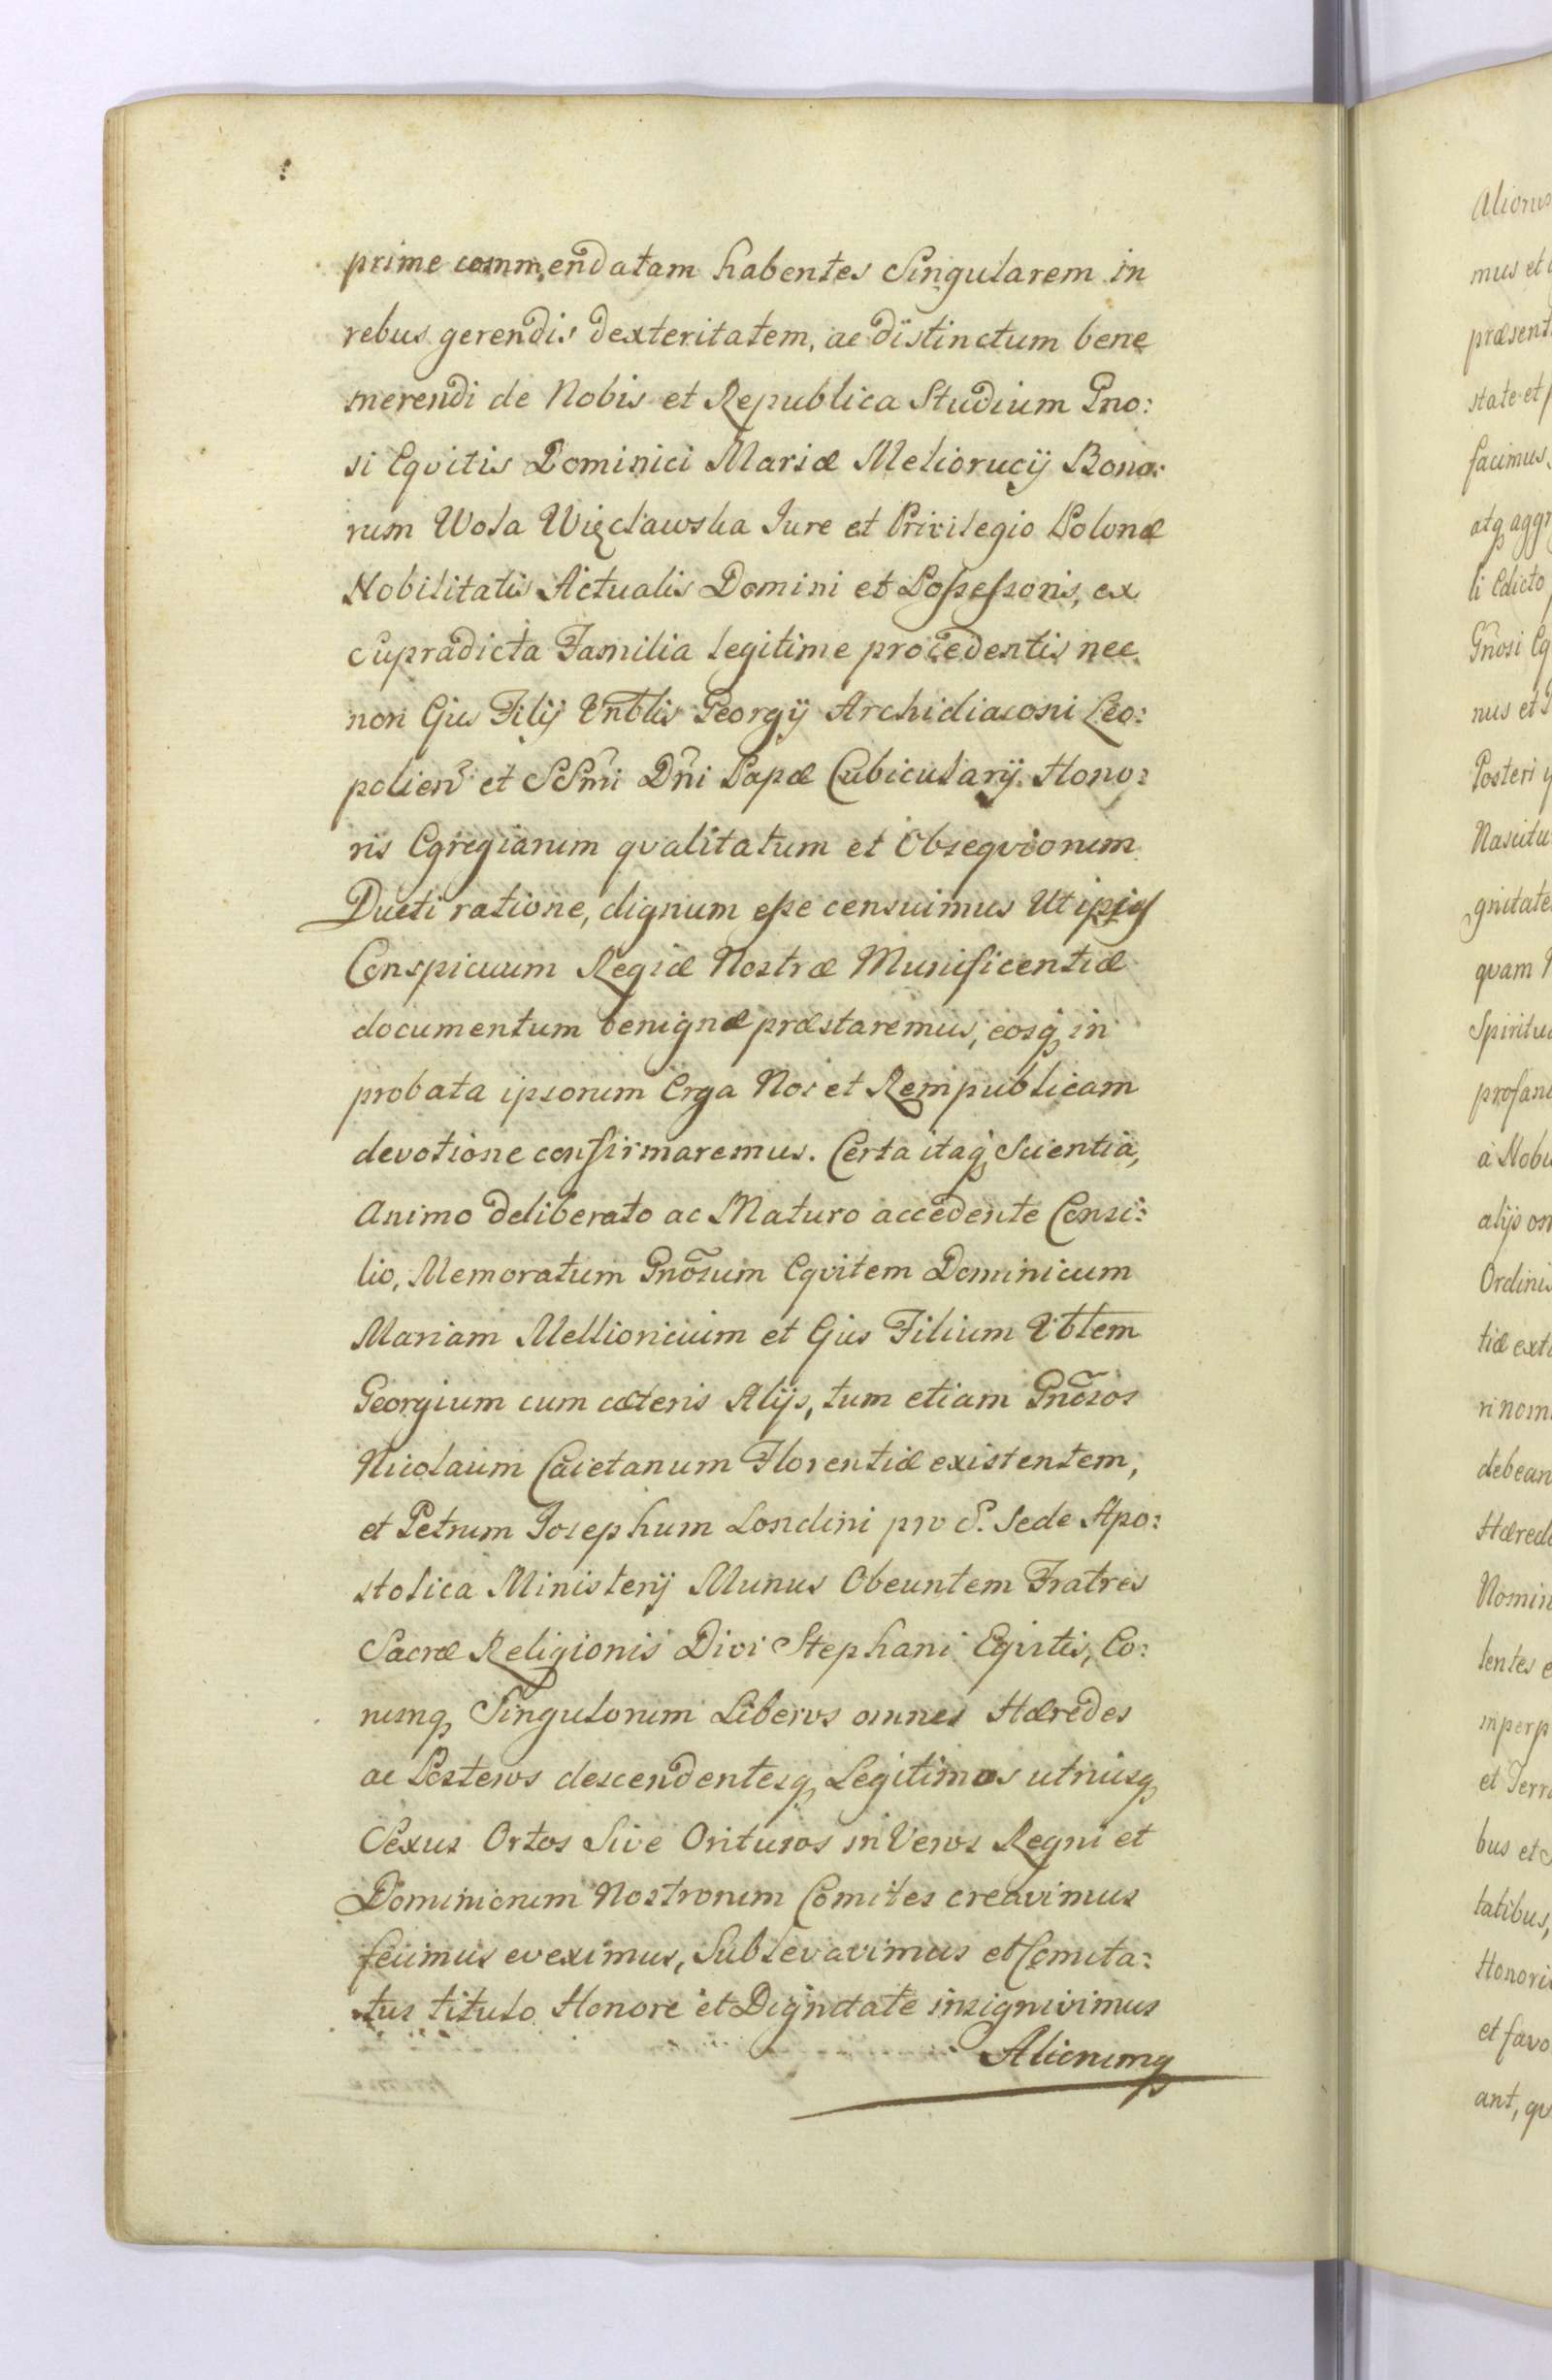 prime commendatam habentes Singularem in
rebus gerendis dexteritatem, ac distinctum bene
merendi de Nobis et Republica Studium Gno:
si Eqvitis Dominici Mariæ Meliorucij Bono:
rum Wola Więcławska Iure et Privilegio Polonæ
Nobilitatis Actualis Domini et Possessoris, ex
supradicta Familia legitime procedentis nec
non Ejus Filij Vnblis Georgij Archidiaconi Leo:
polien: et SSmi Dni Papæ Cubicularij Hono:
ris Egregiarum qvalitatum et Obseqviorum
Ducti ratione, dignum esse censuimus Ut ipsis
Conspicuum Regiæ Nostræ Munificentiæ
documentum benignæ præstaremus, eosq; in
probata ipsorum Erga Nos et Rempublicam
devotione confirmaremus. Certa itaq; Scientia,
Animo deliberato ac Maturo accedente Consi:
lio, Memoratum Gnõsum Eqvitem Dominicum
Mariam Mellioricium et Ejus Filium Vblem
Georgium cum cæteris Alijs, tum etiam Gnõsos
Nicolaum Caietanum Florentiæ existentem,
et Petrum Iosephum Londini pro S. Sede Apo:
stolica Ministerij Munus Obeuntem Fratres
Sacræ Religionis Divi Stephani Eqvitis, Eo:
rumq; Singulorum Liberos omnes Hæredes
ac Posteros descendentesq; Legitimos utriusq;
Sexus Ortos Sive Orituros in Veros Regni et
Dominiorum Nostrorum Comites creavimus
fecimus eveximus, Sublevavimus et Comita:
tus titulo Honore et Dignitate insignivimus
Aliorumq;
Aliorum
mus et
præsent
state et
facimus
atq; aggr
li Edicto
Gnosi Eq
nus et
Posteri
Nascitu
gnitate
quam
Spiritu
profan
a Nobi
alijs om
Ordinis
tiæ ext
ri nom
debean
Hæred
Nomin
lentes
in perp
et Terr
bus et
tatibus,
Honori
et favo
ant, qv